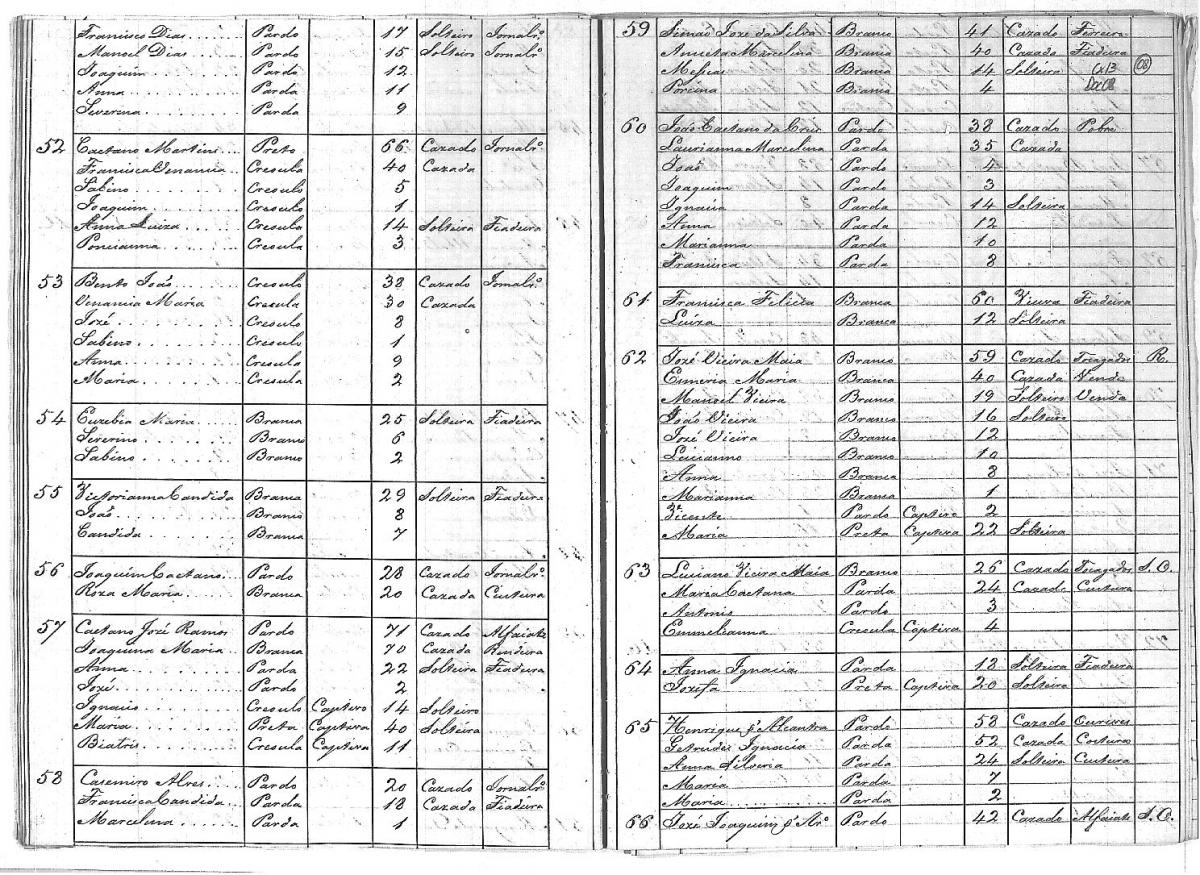 Francisco Dias Pardo 17 Solteiro Jornalrº
Manoel Dias Pardo 15 Solteiro Jornalrº
Joaquim Pardo 12
Anna Parda 11
Severina Parda 9
52 Caetano Martins Preto 66 Cazado Jornalrº
Francisca Venancia Creoula 40 Cazada
Sabino Creoulo 5
Joaquim Creoulo 1
Anna Luiza Creoula 14 Solteira Fiadeira
Poncianna Creoula 3
53 Bento João Creoulo 38 Cazado Jornalrº
Venancia Maria Creoula 30 Cazada
Jozé Creoulo 8
Sabino Creoulo 1
Anna Creoula 9
Maria Creoula 2
54 Euzebia Maria Branca 25 Solteira Fiadeira
Severino Branco 6
Sabino Branco 2
55 Victorianna Candida Branca 29 Solteira Fiadeira
João Branco 8
Candida Branca 7
56 Joaquim Caetano Pardo 28 Cazado Jornalrº
Roza Maria Branca 20 Cazada Custura
57 Caetano Jozé Ramos Pardo 71 Cazado Alfaiate
Joaquina Maria Branca 70 Cazada Rendeira
Anna Parda 22 Solteira Fiadeira
Jozé Pardo 2
Ignacio Creoulo Captivo 14 Solteiro
Maria Preta Captiva 40 Solteira
Biatris Creoula Captiva 11
58 Casemiro Alves Pardo 20 Cazado Jornalrº
Francisca Candida Parda 18 Cazada Fiadeira
Marcelina Parda 1
59 Simão Jozé da Silva Branco 41 Cazado Ferreiro
Aniceta Marcelina Branca 40 Cazada Fiadeira
Messias Branca 14 Solteira Cx13 08
Porcina Branca 4 Doc08
60 João Caetano da Cruz Pardo 38 Cazado Pobre
Laurianna Marcelina Parda 35 Cazada
João Pardo 4
Joaquim Pardo 3
Ignacia Parda 14 Solteira
Anna Parda 12
Marianna Parda 10
Francisca Parda 8
61 Francisca Felicia Branca 60 Viuva Fiadeira
Luiza Branca 12 Solteira
62 Jozé Vieira Maia Branco 59 Cazado Roçagador R.
Eumeria Maria Branca 40 Cazada Venda
Manoel Vieira Branco 19 Solteiro Venda
João Vieira Branco 16 Solteiro
Jozé Vieira Branco 12
Lucianno Branco 10
Anna Branca 8
Marianna Branca 1
Vicente Pardo Captivo 2
Maria Preta Captiva 22 Solteira
63 Luciano Vieira Maia Branco 26 Cazado S. O.
Maria Caetana Parda 24 Cazada Custura
Antonio Pardo 3
Emmelianna Creoula Captiva 4
64 Anna Ignacia Parda 18 Solteira Fiadeira
Jozefa Preta Captiva 20 Solteira
65 Henrique d'Alcantra Pardo 58 Cazado Ourives
Getrudes Ignacia Parda 52 Cazada Custura
Anna Silveria Parda 24 Solteira Custura
Maria Parda 7
Maria Parda 2
66 Jozé Joaquim Pardo 42 Cazado Alfaiate S. O.